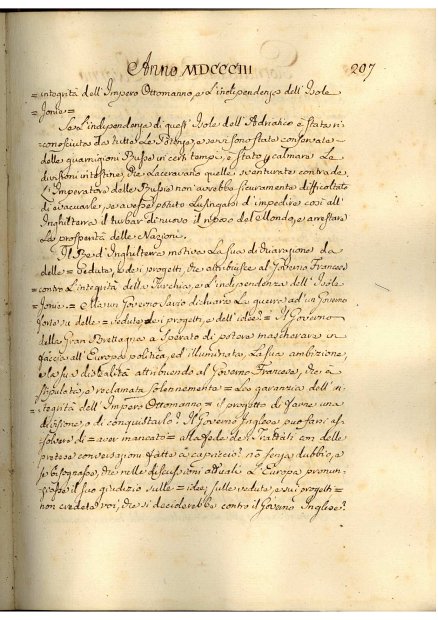 Anno MDCCCIII 207
=integrità dell' Impero Ottomanno, e L'indipendenza dell' Isole
=Jonie=
Se L'indipendenza di quest' Isole dell' Adriatico è stata ri=
conosciuta da tutte Le Potenze, e se vi sono state conservate
delle guarnigioni Russe in certi tempi, è stato p calmare Le
divisioni intestine, che Laceravano quelle sventurate contrade.
L'Imperatore delle Russie non avrebbe sicuramente difficoltato
di evacuarle, se avesse potuto Lusingarsi d'impedire così all'
Inghilterra il turbar di nuovo il riposo del Mondo, e arrestare
La prosperità delle Nazioni.
Il Re d'Inghilterra motiva La sua dichiarazione da
delle = Vedute, e dei progetti, che attribuisce al Governo Francese
contro L'integrità della Turchia, e L'indipendenza dell' Isole
Jonie.= Ma un Governo Savio dichiara La guerra ad un Governo
sopra delle = vedute, dei progetti, e dell' idee? = Il Governo
della Gran Brettagna à sperato di potere mascherare in
faccia all' Europa politica, ed illuminata, La sua ambizione,
e la sua dislealtà attribuendo al Governo Francese, che à
stipulato, e reclamata solennemente = La garanzia dell' in=
tegrità dell' Impero Ottomanno = il progetto di farne una
divisione, o di conquistarlo? Il Governo Inglese può farsi as=
solvere di = aver mancato = alla fede de' Trattati con delle
pretese conversazioni fatte a capriccio? nò senza dubbio, e
se bisognasse, che nelle discussioni attuali L'Europa pronun=
ziasse il suo giudizio sulle = idee, sulle vedute, e sui progetti =
non credete voi, che si deciderebbe contro il Governo Inglese?